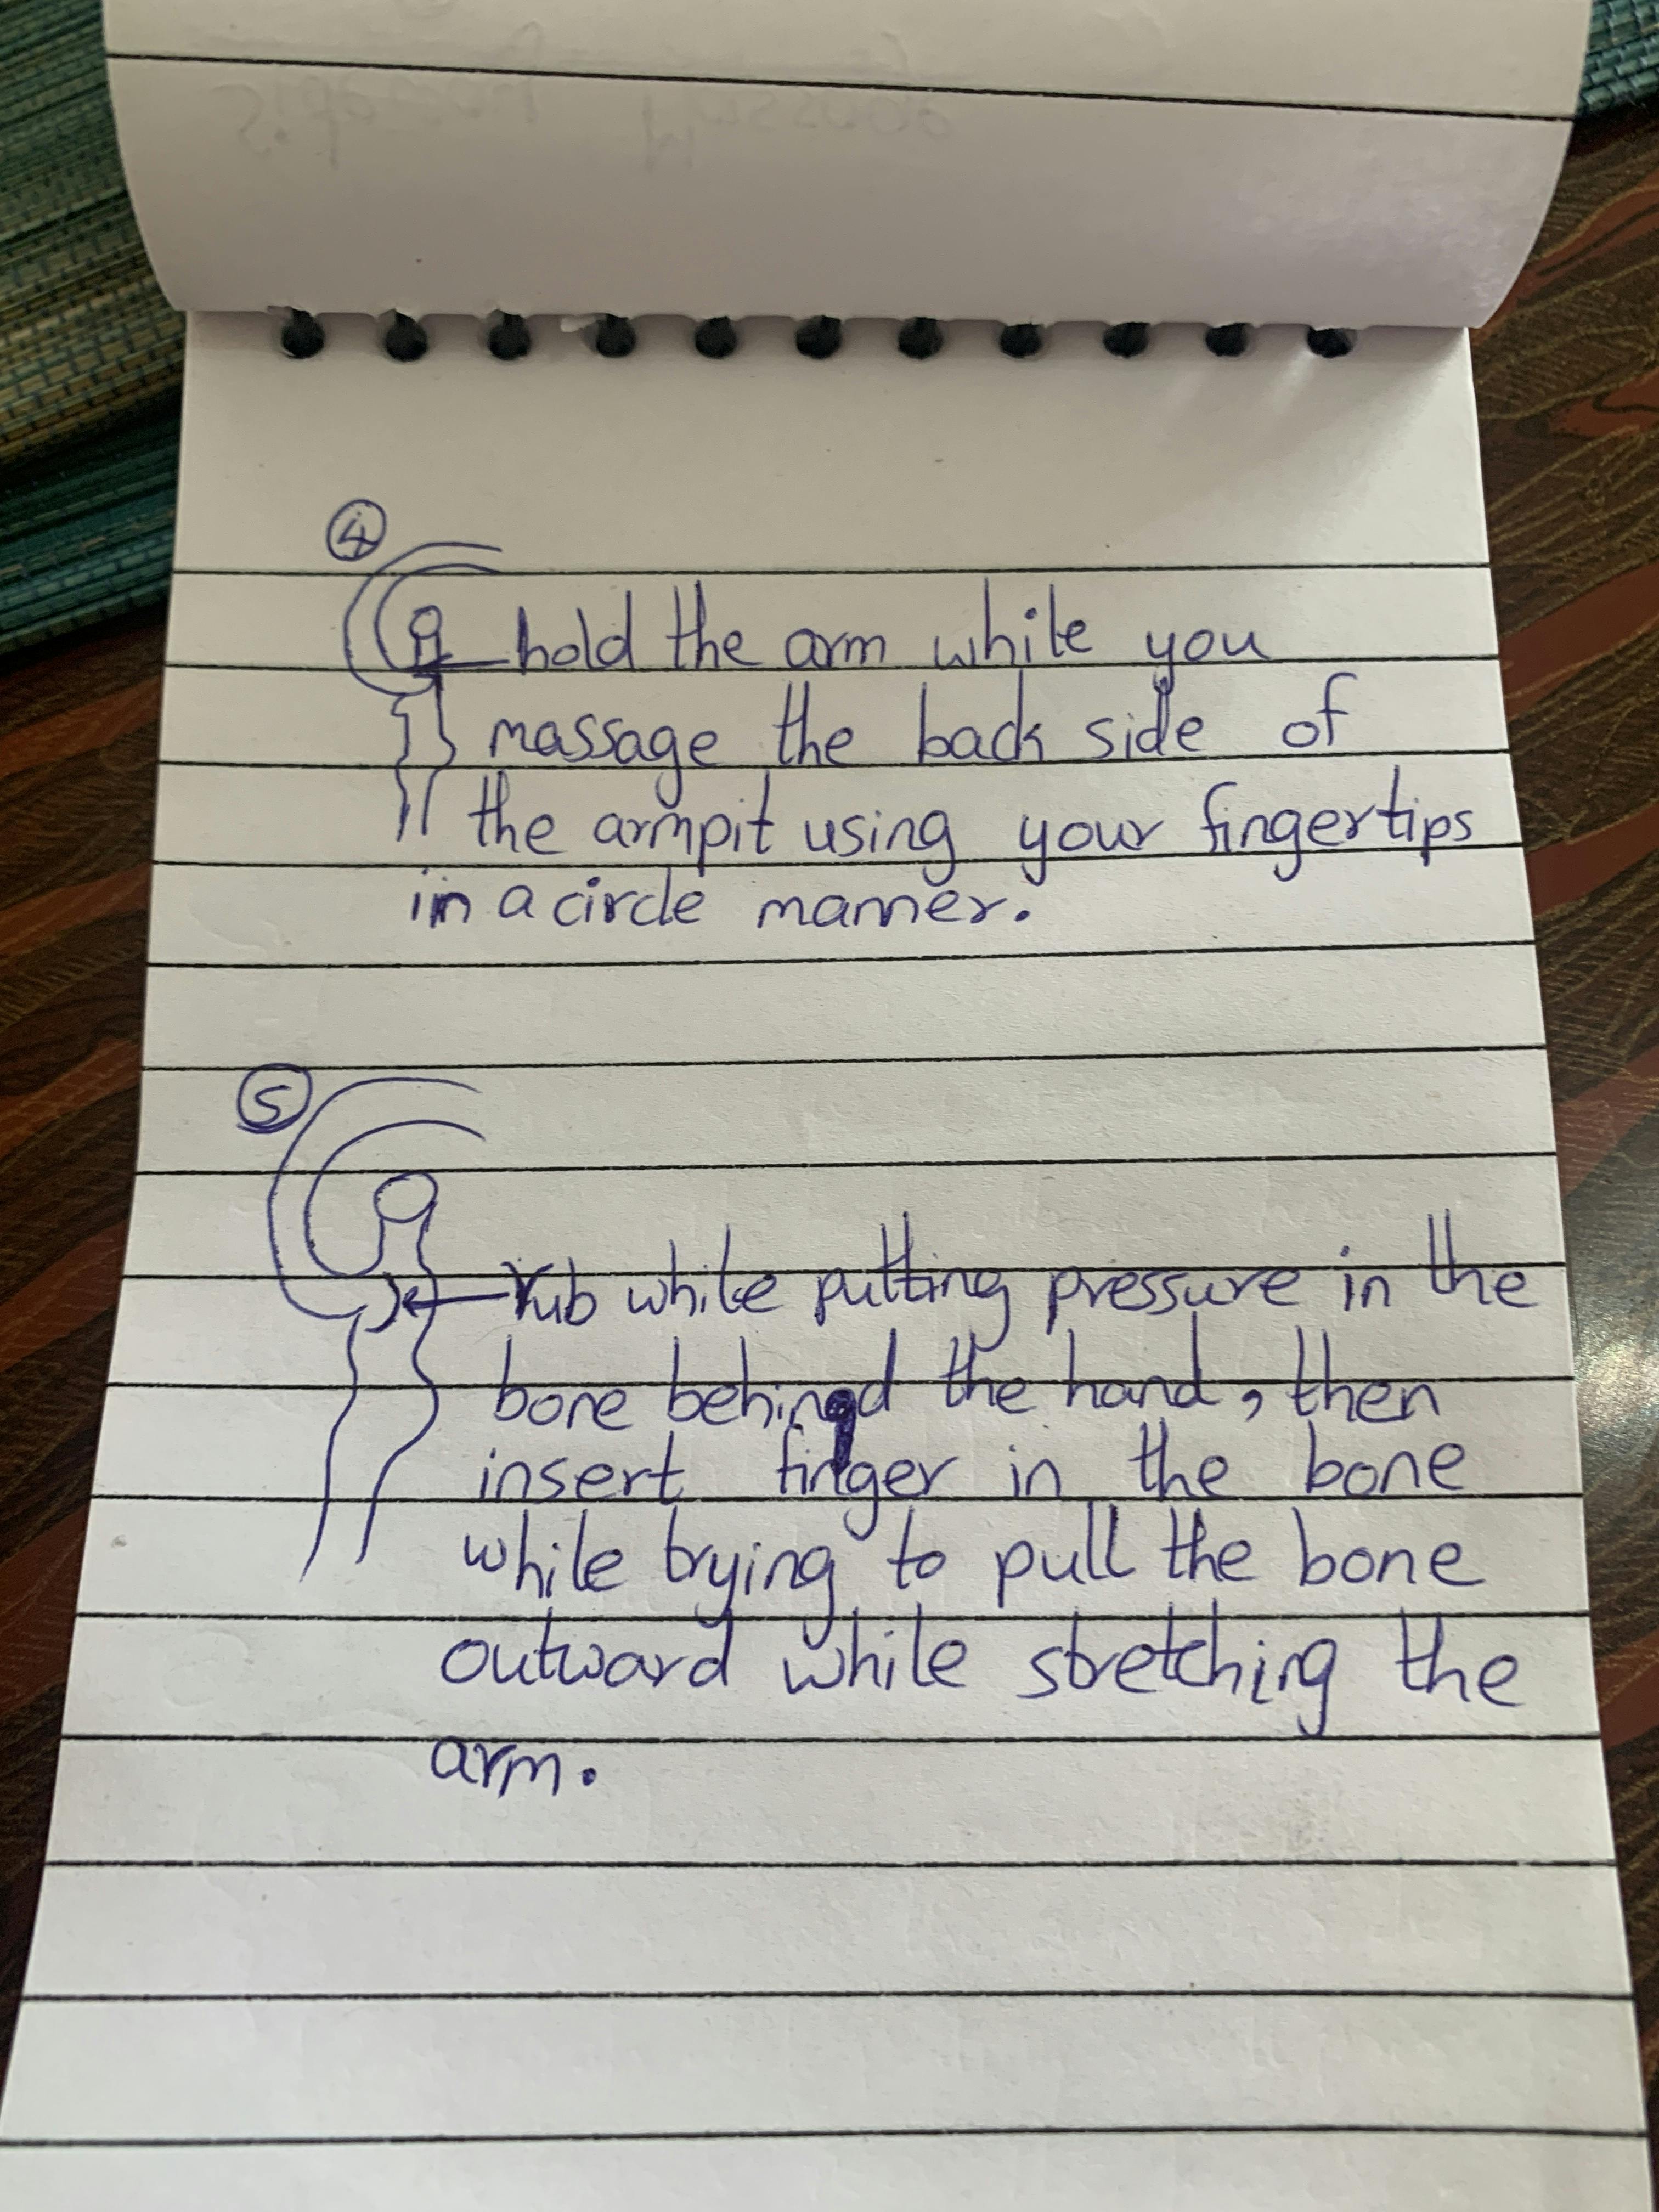 ④
hold the arm while you
massage the back side of
the armpit using your fingertips
in a circle manner.
⑤
rub while putting pressure in the
bone behind the hand, then
insert finger in the bone
while trying to pull the bone
outward while stretching the
arm.